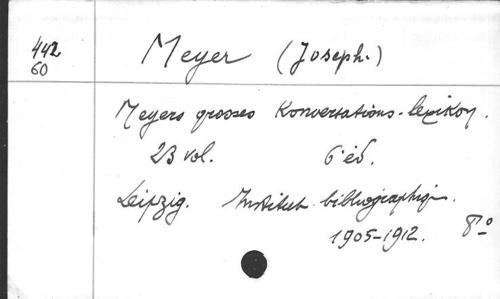 442
60
Meyer (Joseph.)
Meyers grosses Konversations-lexikon.
23 vol. 6e éd.
Leipzig. Institut bibliographiq.
1905-1912. 8º